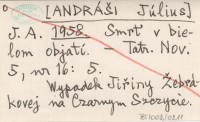 [ANDRÁŠI Július]
J. A. 1958. Smrť v bie-
lom objatí. – Tatr. Nov.
5, nr 16: 5.
Wypadek Jiřiny Žebra-
kovej na Czarnym Szczycie.